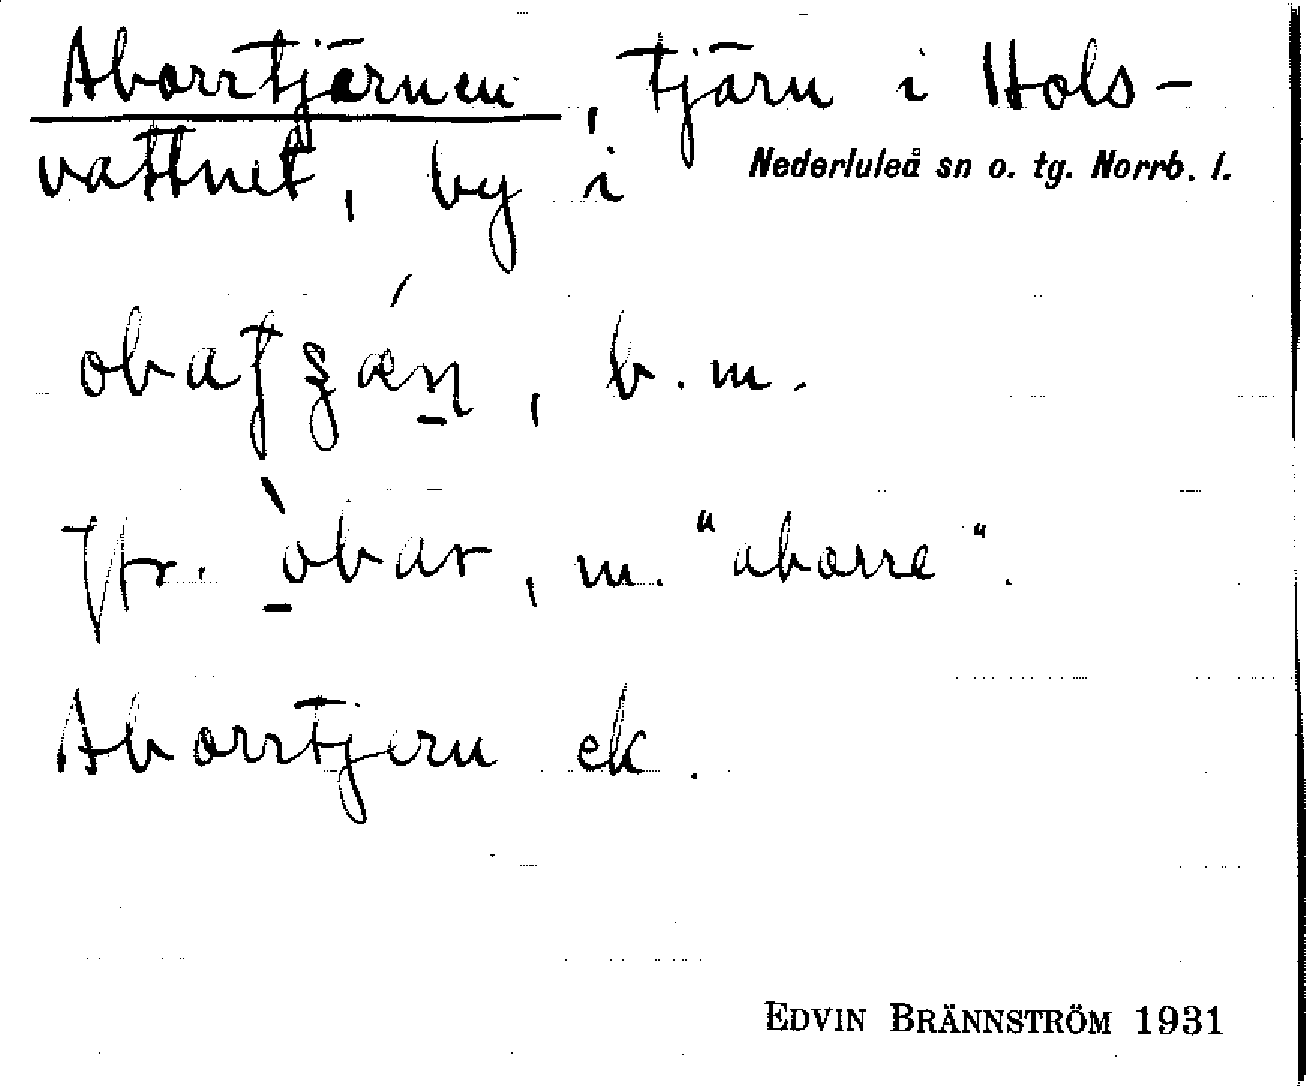 Aborrtjärnen, tjärn i Hols-
vattnet, by i Nederluleå sn o. tg. Norrb. l.
b. m.
Jfr. òbar, m. "aborre".
Aborrtjern ek.
EDVIN BRÄNNSTRÖM 1931